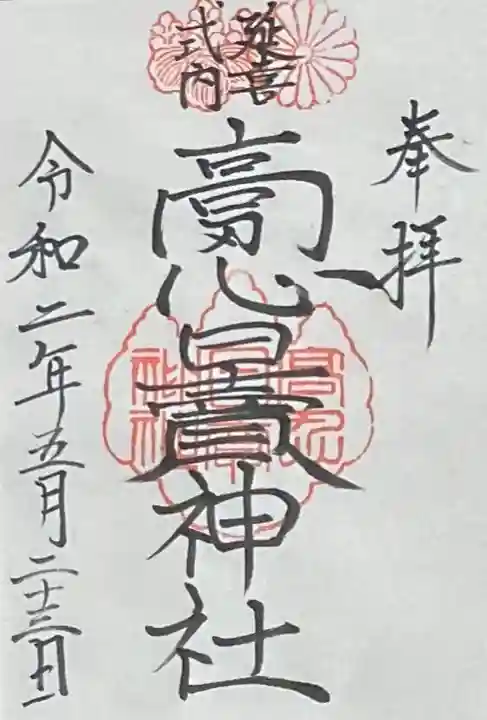 奉拝
延喜
式内
高忍日賣神社
令和二年五月二十三日